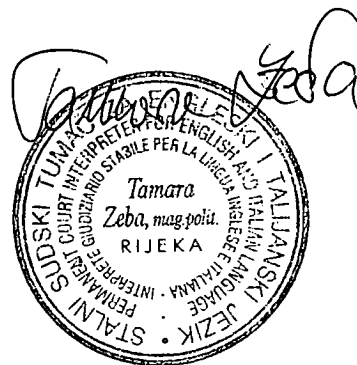 Tamara Zeba
STALNI SUDSKI TUMAČ ZA ENGLESKI I TALIJANSKI JEZIK •
PERMANENT COURT INTERPRETER FOR ENGLISH AND ITALIAN LANGUAGE
INTERPRETE GIUDIZIARIO STABILE PER LA LINGUA INGLESE E ITALIANA •
Tamara
Zeba, mag.polit.
RIJEKA